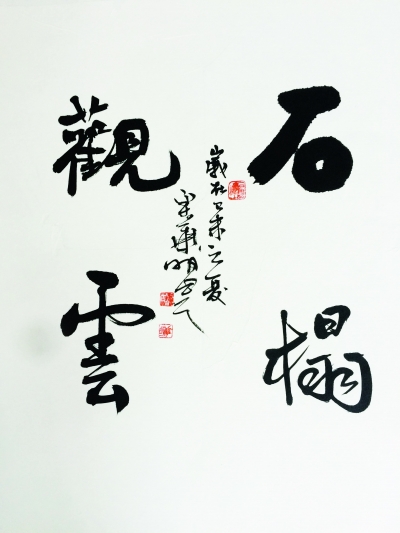 石榻
觀雲
歲在乙未之夏